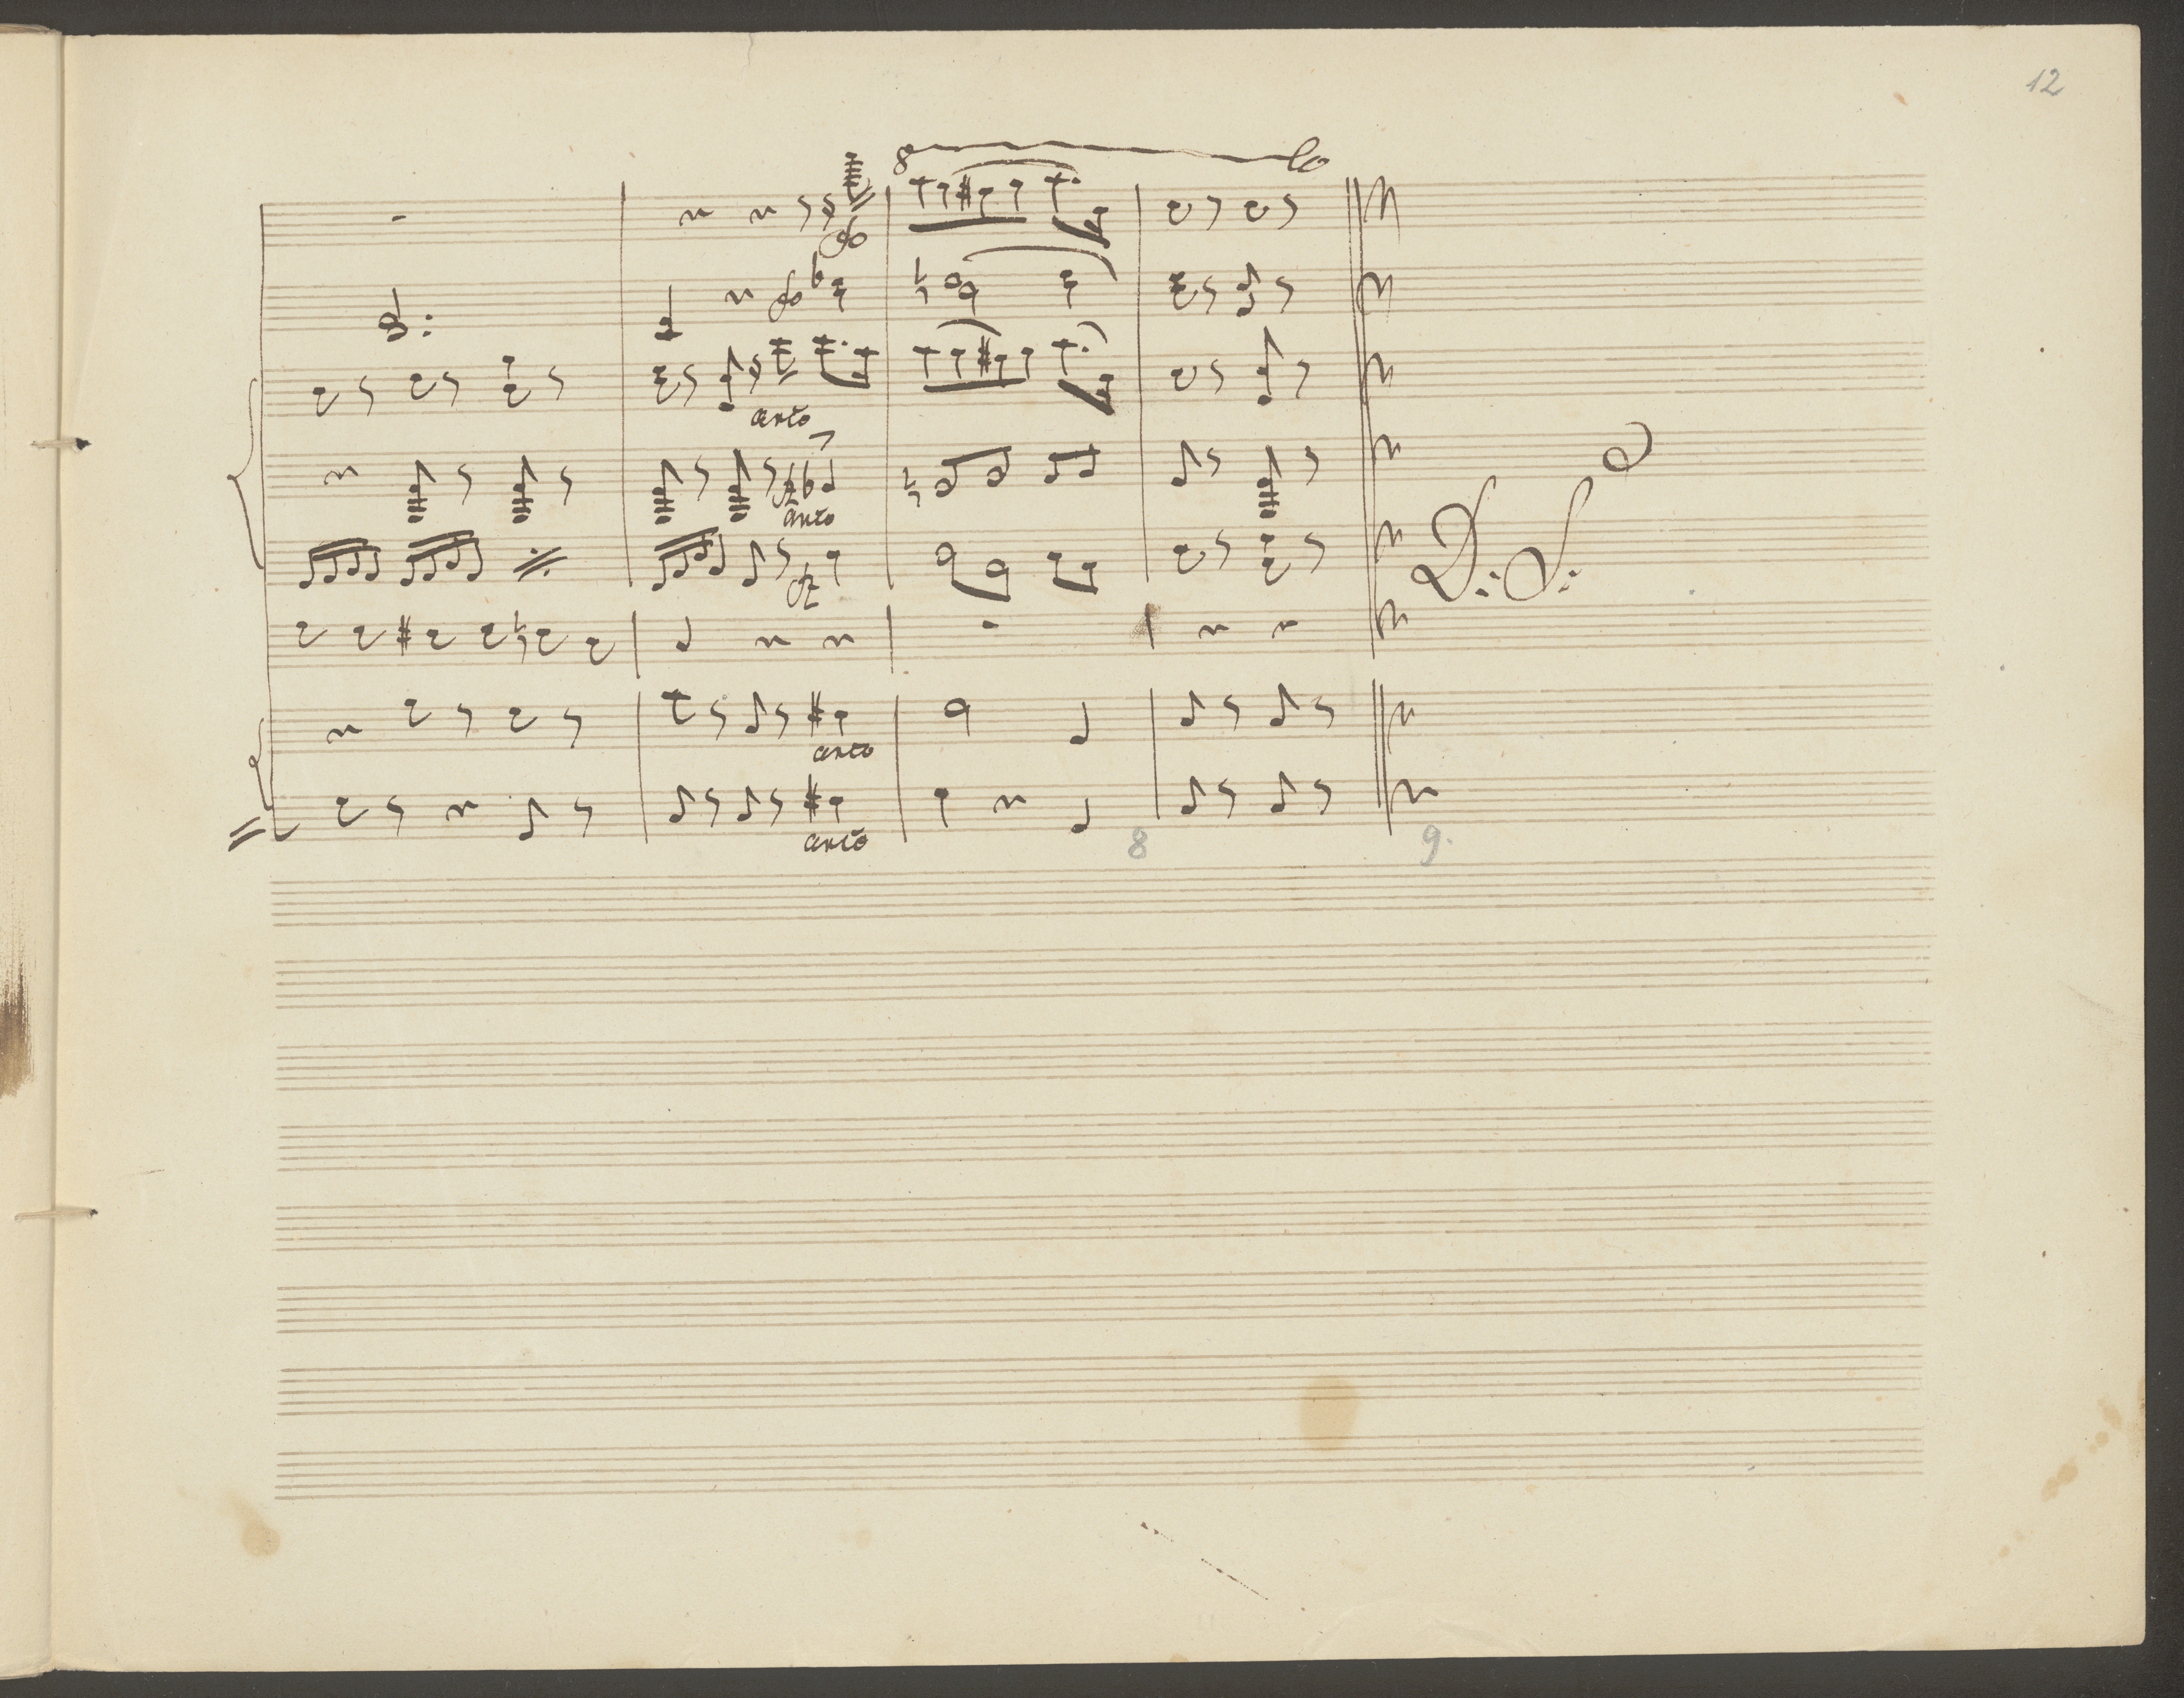 12
8 lo
arco
arco
D. S.
arco
arco
8 9.